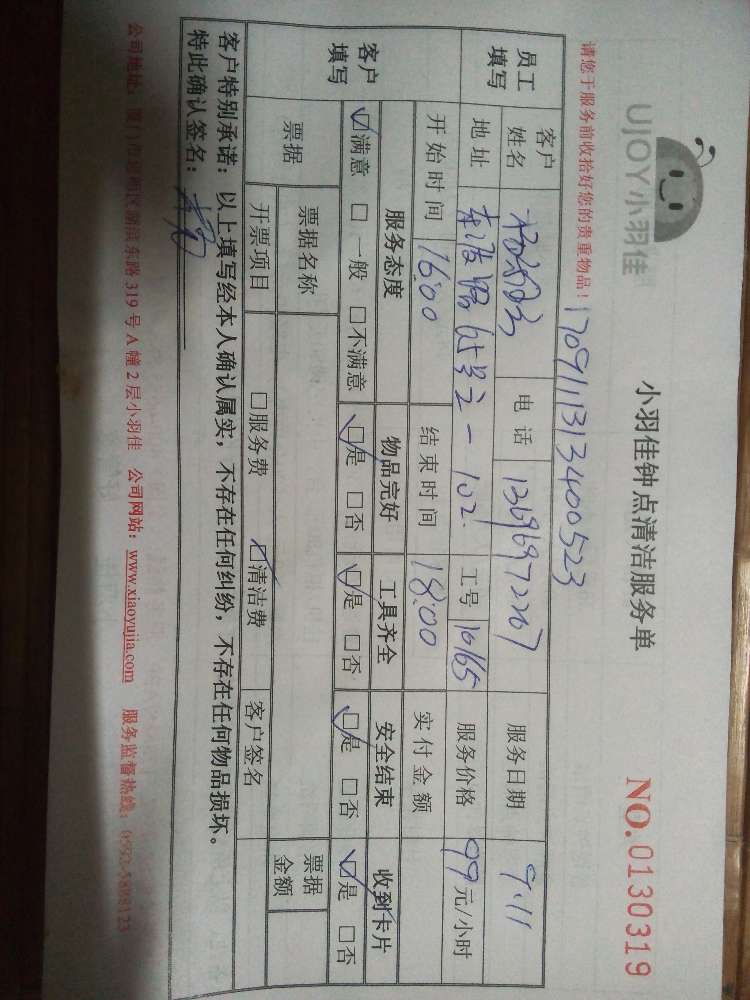 UJOY小羽佳
小羽佳钟点清洁服务单
NO.0130319
请您于服务前收拾好您的贵重物品！
1709111313400523
员工填写
客户姓名 电话 13696972267 服务日期 9.11
地址 65号之一102. 工号 10165 服务价格 99元/小时
开始时间 16:00 结束时间 18:00 实付金额
客户填写
服务态度 物品完好 工具齐全 安全结束 收到卡片
☑满意 □一般 □不满意 ☑是 □否 ☑是 □否 ☑是 □否 ☑是 □否
票据 票据名称 票据金额
开票项目 □服务费 ☑清洁费 客户签名
客户特别承诺：以上填写经本人确认属实，不存在任何纠纷，不存在任何物品损坏。
特此确认签名：
公司地址：厦门市 东路319号A幢2层小羽佳 公司网站：www.xiaoyujia.com 服务监督热线：0592-5898123